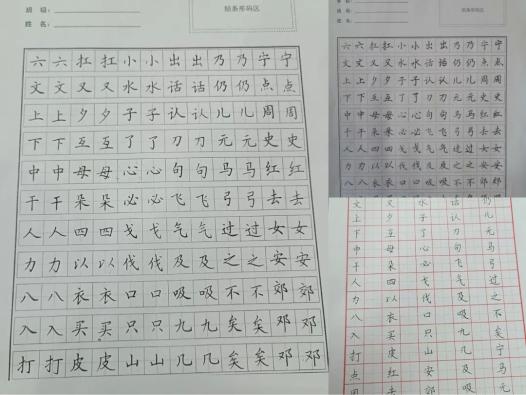 班 级：
姓 名：
贴条形码区
六六扛扛小小出出乃乃宁宁
文文又又水水话话仍仍点点
上上夕夕子子认认儿儿周周
下下互互了了刀刀元元史史
中中母母心心句句马马红红
干干朵朵必必飞飞弓弓去去
人人四四戈戈气气过过女女
力力以以伐伐及及之之安安
八八衣衣口口吸吸不不郊郊
入入买买只只九九矣矣邓邓
打打皮皮山山几几矣矣邓邓
贴条形码区
六六扛扛小小出出乃乃宁宁
文文又又水水话话仍仍点点
上上夕夕子子认认儿儿周周
下下互互了了刀刀元元史史
中中母母心心句句马马红红
干干朵朵必必飞飞弓弓去去
人人四四戈戈气气过过女女
力力以以伐伐及及之之安安
八八衣衣口口吸吸不不郊郊
文又水话仍
上夕子认儿
下互了刀元
中母心句马
干朵必飞弓
人四戈气过
力以伐及之
八衣口吸不
入买只九矣
打皮山几宁
点红安及马